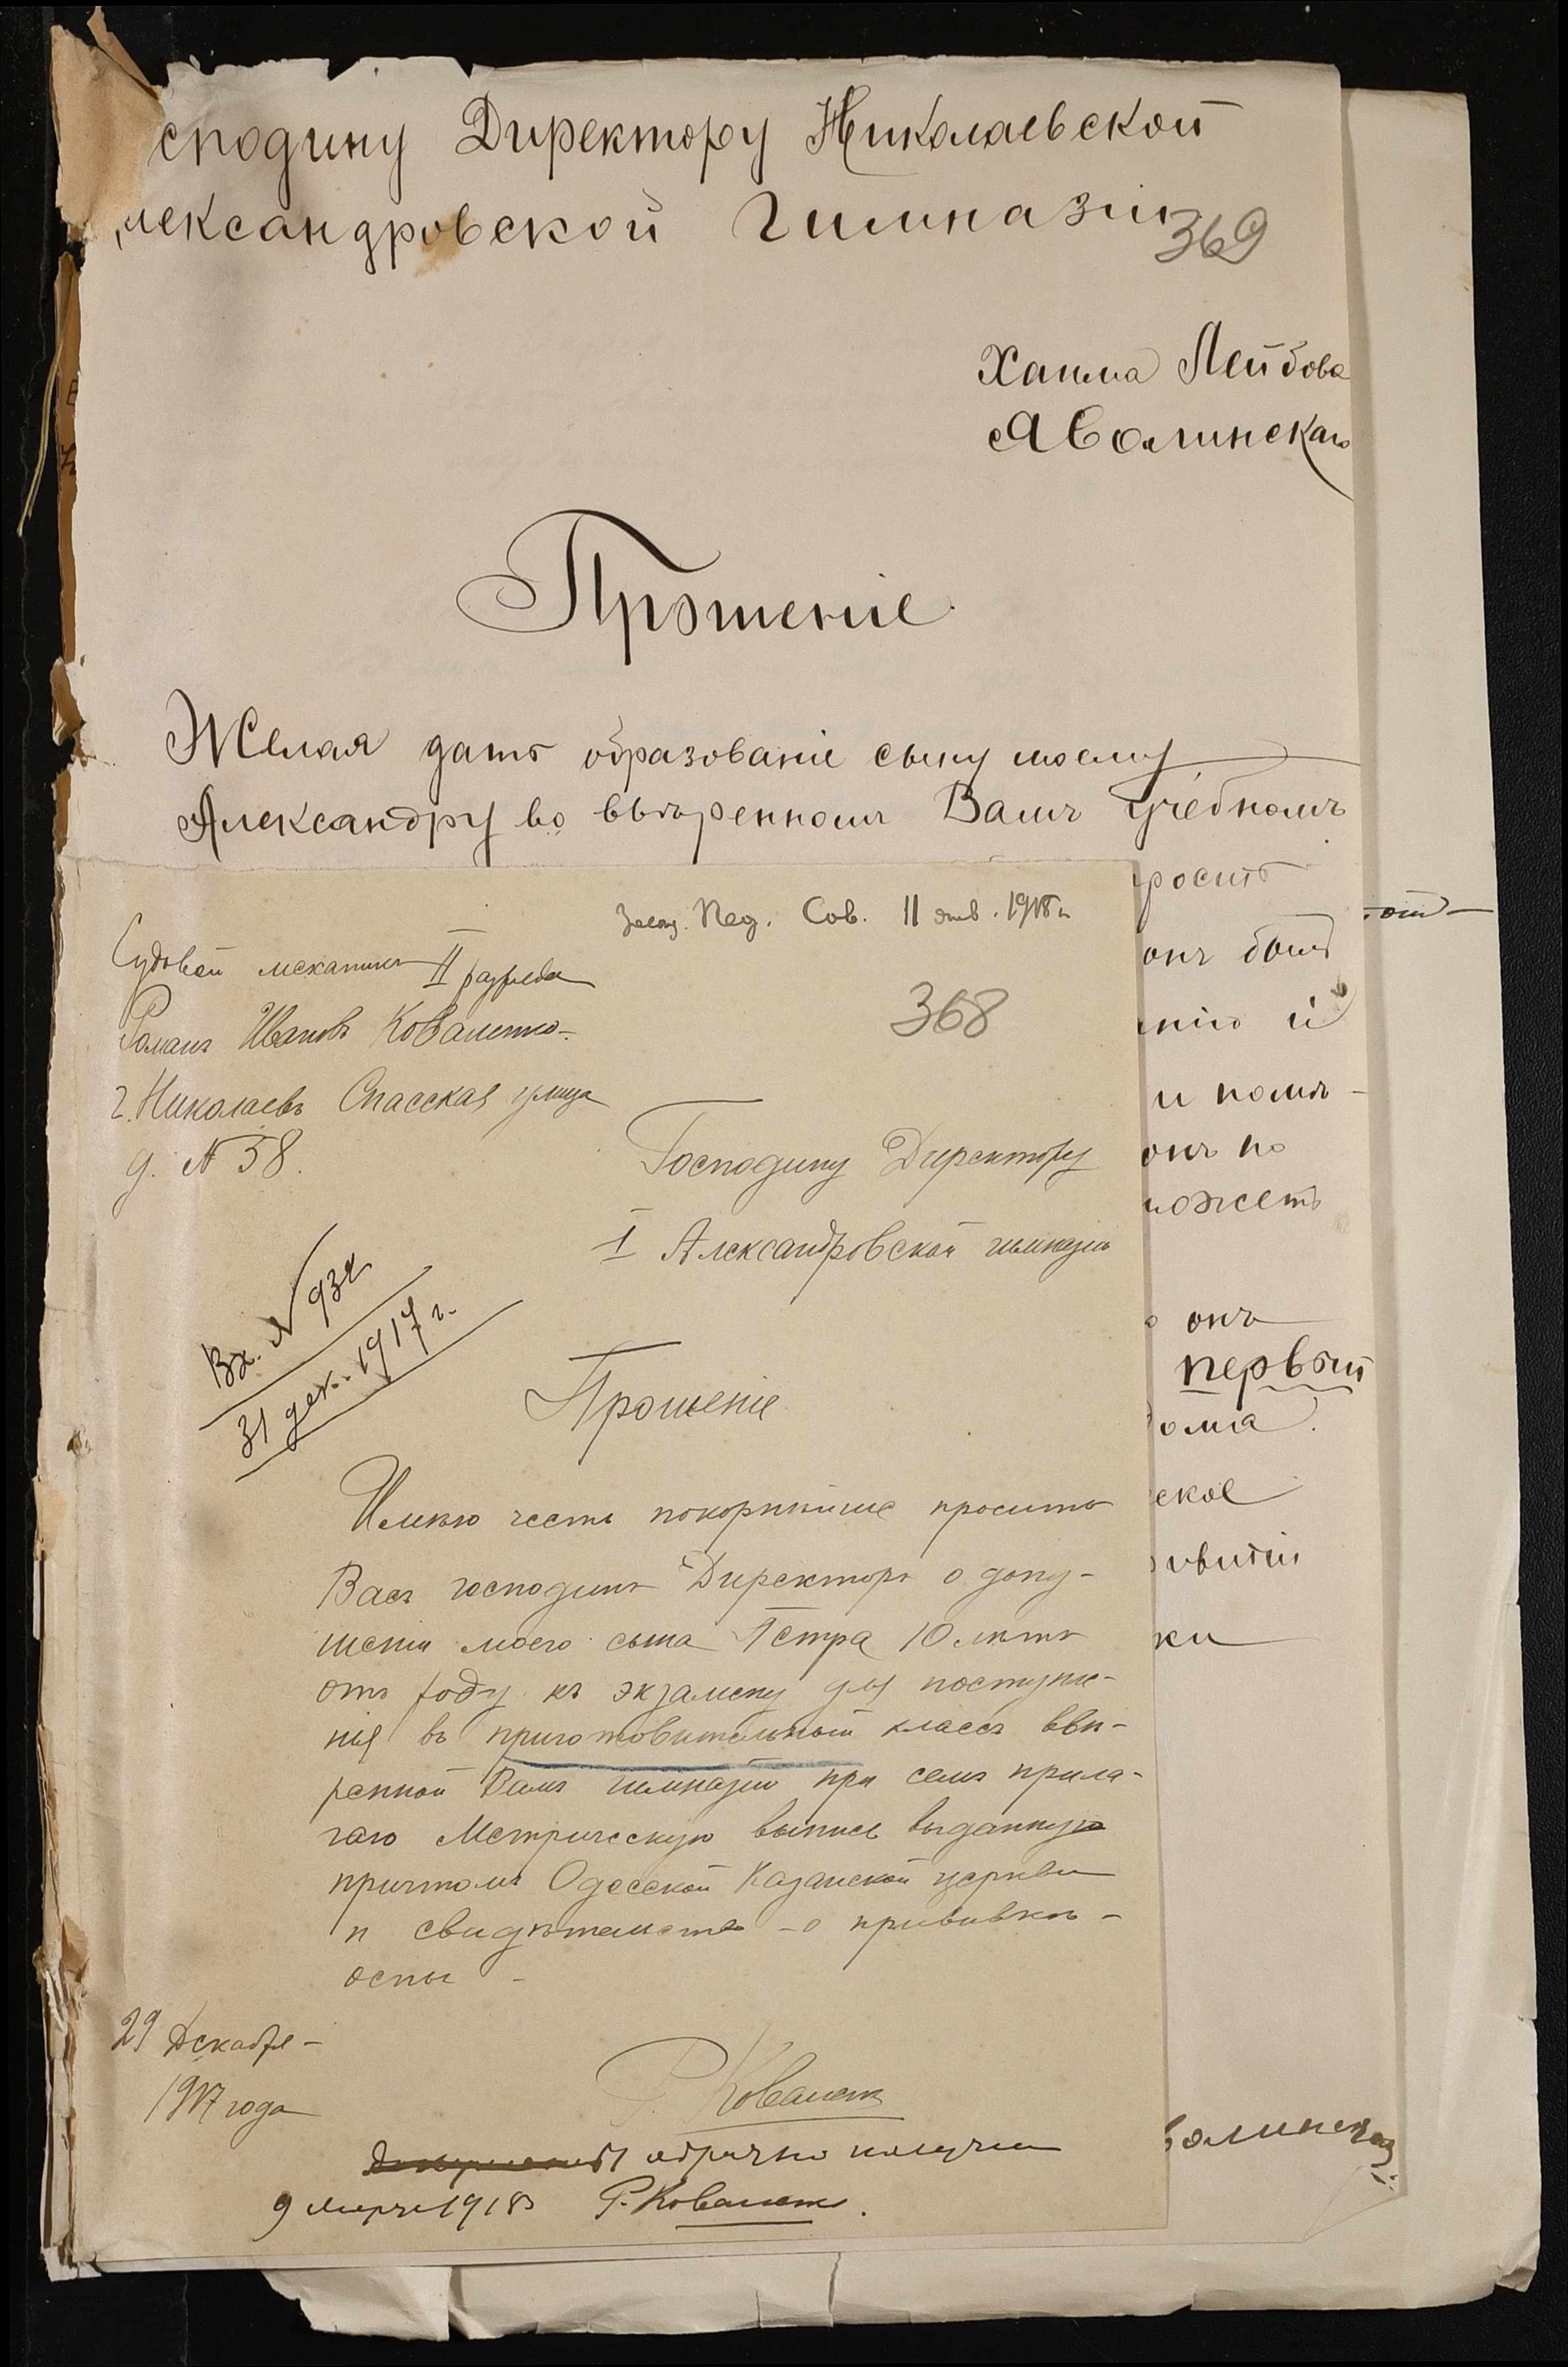 сподину Директору Николаевской
лександровской Гимназіи
369
Хаима Лейбова
Аволинскаго
Прошеніе
Желая дать образованіе сыну моему
Александру во ввѣренномъ Вамъ учебномъ
росить
онъ былъ
нію и
и помѣ-
онъ по
ожетъ
онъ
первый
ома.
ское
ивитіи
ки
олинскій
Засѣд. Пед. Сов. 11 янв. 1918 г.
368
Судовой механикъ II разряда
Романъ Ивановъ Коваленко
г. Николаевъ Спасская улица
д. № 58.
Господину Директору
I Александровской гимназіи
Вх. № 932
31 дек. 1917 г.
Прошеніе
Имѣю честь покорнѣйше просить
Васъ господинъ Директоръ о допу-
щеніи моего сына Петра 10 лѣтъ
отъ роду къ экзамену для поступле-
нія въ приготовительный классъ ввѣ-
ренной Вамъ гимназіи при семъ прила-
гаю Метрическую выпись выданную
причтомъ Одесской Казанской церкви
и свидѣтельство о прививкѣ
оспы -
29 Декабря -
1917 года
Р. Коваленко
обратно получилъ
9 марта 1918 Р. Коваленко.